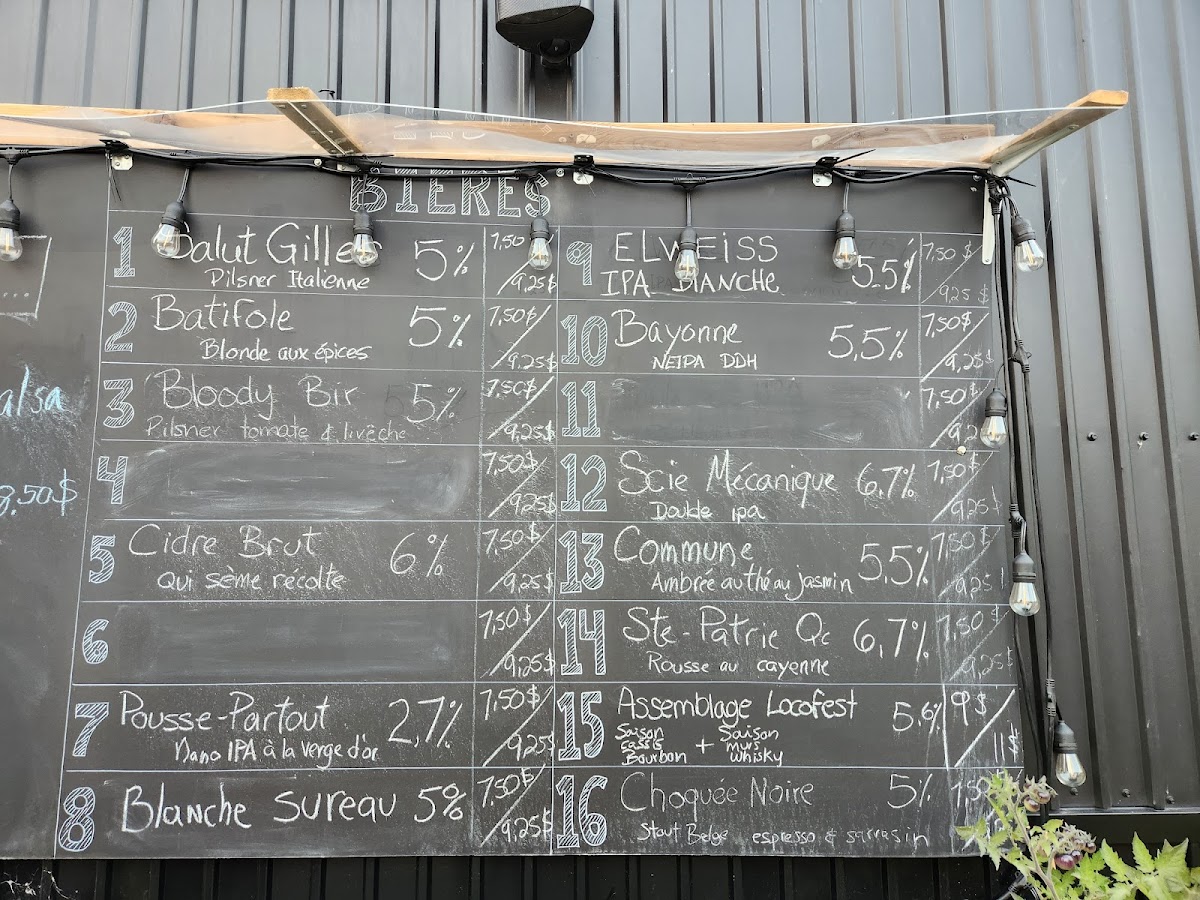 BIÈRES
alsa
8,50$
1 Salut Gilles 5% 7,50/9,25$
Pilsner Italienne
2 Batifole 5% 7,50$/9,25$
Blonde aux épices
3 Bloody Bir 5% 7,50$/9,25$
Pilsner tomate & livèche
4 7,50$/9,25$
5 Cidre Brut 6% 7,50$/9,25$
Qui sème récolte
6 7,50$/9,25$
7 Pousse-Partout 2,7% 7,50$/9,25$
Nano IPA à la verge d'or
8 Blanche Sureau 5% 7,50$/9,25$
9 ELWEISS 5.5% 7,50$/9,25$
IPA BLANCHE
10 Bayonne 5,5% 7,50$/9,25$
NEIPA DDH
11 7,50$/9,2
12 Scie Mécanique 6,7% 7,50$/9,25$
Double ipa
13 Commune 5,5% 7,50$/9,25$
Ambrée au thé au jasmin
14 Ste-Patrie Qc 6,7% 7,50$/9,25$
Rousse au cayenne
15 Assemblage Locofest 5.6% 9$/11$
Saison cassis Bourbon + Saison mures whisky
16 Choquée Noire 5% 7,50
Stout Belge espresso & sarrasin